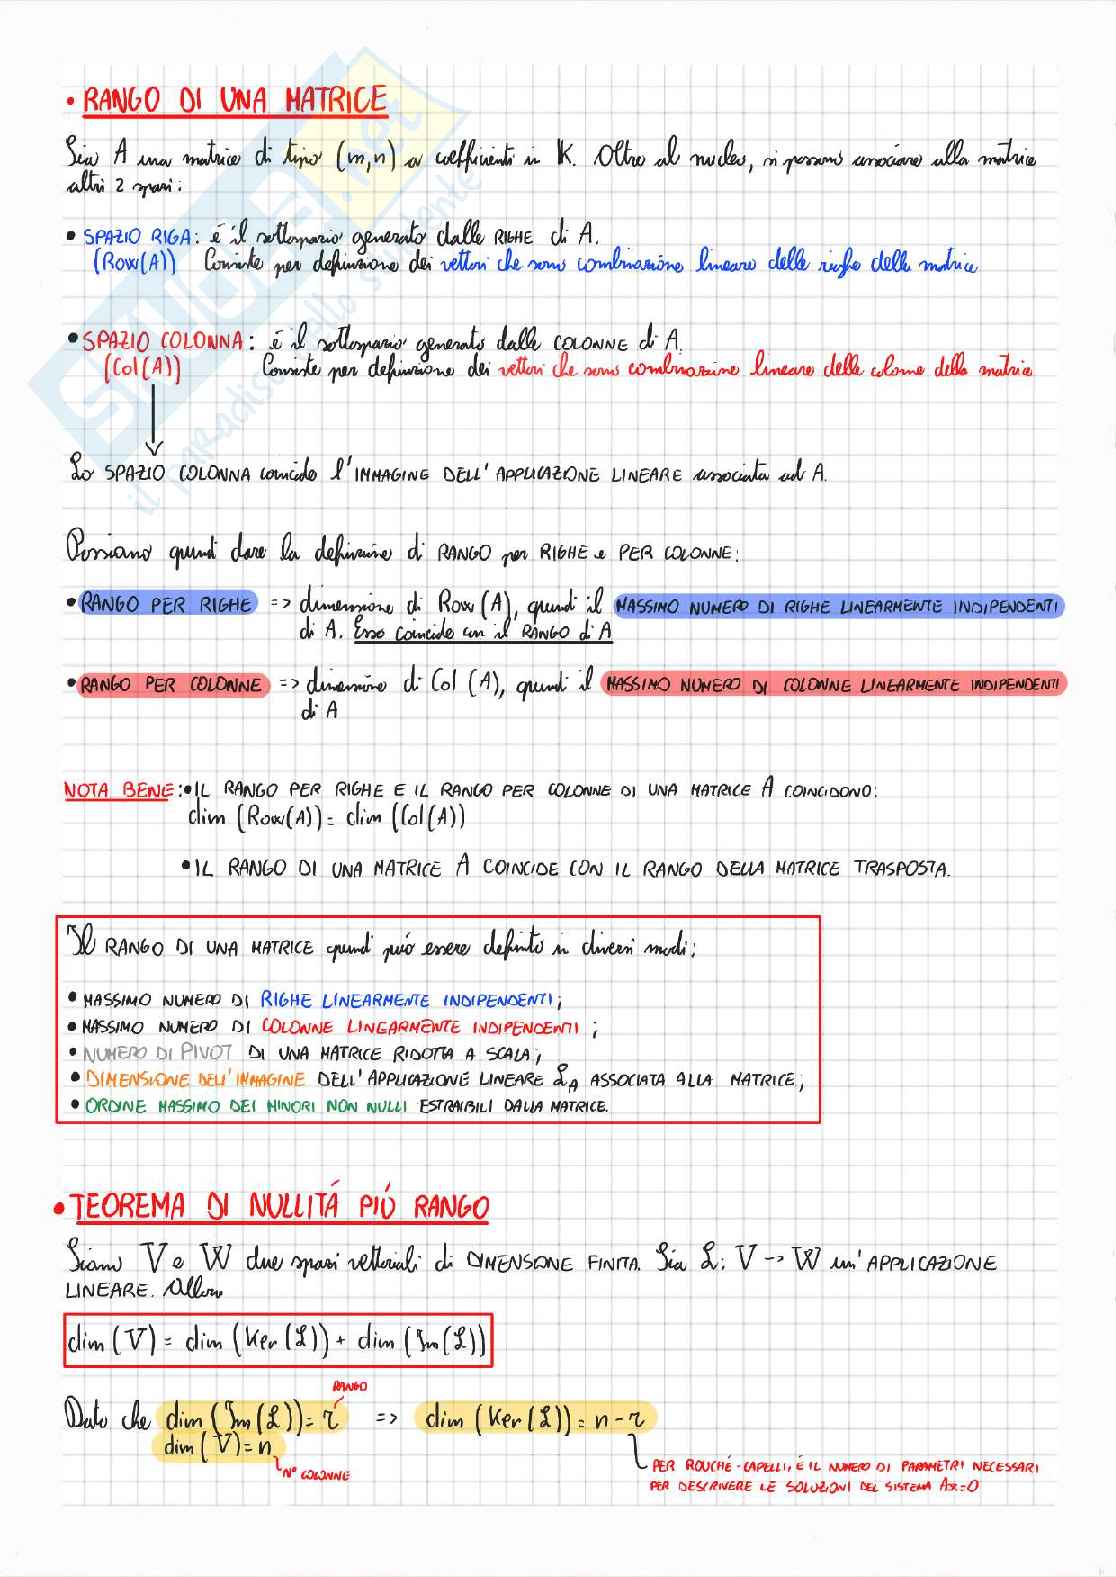 • RANGO DI UNA MATRICE
Sia A una matrice di tipo (m,n) a coefficienti in K. Oltre al nucleo, si possono associare alla matrice
altri 2 spazi:
• SPAZIO RIGA: é il sottospazio generato dalle RIGHE di A.
(Row(A)) Consiste per definizione dei vettori che sono combinazione lineare delle righe della matrice
• SPAZIO COLONNA: é il sottospazio generato dalle COLONNE di A.
(Col(A)) Consiste per definizione dei vettori che sono combinazione lineare delle colonne della matrice
Lo SPAZIO COLONNA coincide l'IMMAGINE DELL'APPLICAZIONE LINEARE associata ad A.
Possiamo quindi dare la definizione di RANGO per RIGHE e PER COLONNE:
• RANGO PER RIGHE => dimensione di Row(A), quindi il MASSIMO NUMERO DI RIGHE LINEARMENTE INDIPENDENTI
di A. Esso coincide con il RANGO di A
• RANGO PER COLONNE => dimensione di Col (A), quindi il MASSIMO NUMERO DI COLONNE LINEARMENTE INDIPENDENTI
di A
NOTA BENE: • IL RANGO PER RIGHE E IL RANGO PER COLONNE DI UNA MATRICE A COINCIDONO:
dim (Row(A)) = dim (Col(A))
• IL RANGO DI UNA MATRICE A COINCIDE CON IL RANGO DELLA MATRICE TRASPOSTA.
Il RANGO DI UNA MATRICE quindi puó essere definito in diversi modi:
• MASSIMO NUMERO DI RIGHE LINEARMENTE INDIPENDENTI;
• MASSIMO NUMERO DI COLONNE LINEARMENTE INDIPENDENTI;
• NUMERO DI PIVOT DI UNA MATRICE RIDOTTA A SCALA;
• DIMENSIONE DELL'IMMAGINE DELL'APPLICAZIONE LINEARE ℒA ASSOCIATA ALLA MATRICE;
• ORDINE MASSIMO DEI MINORI NON NULLI ESTRAIBILI DALLA MATRICE.
• TEOREMA DI NULLITÁ PIÚ RANGO
Siano V e W due spazi vettoriali di DIMENSIONE FINITA. Sia ℒ: V -> W un'APPLICAZIONE
LINEARE. Allora
dim (V) = dim (Ker (ℒ)) + dim (Im(ℒ))
RANGO
Dato che dim (Im(ℒ)) = r => dim (Ker (ℒ)) = n - r
dim (V) = n
N° COLONNE
PER ROUCHÉ-CAPELLI, É IL NUMERO DI PARAMETRI NECESSARI
PER DESCRIVERE LE SOLUZIONI DEL SISTEMA Ax=0